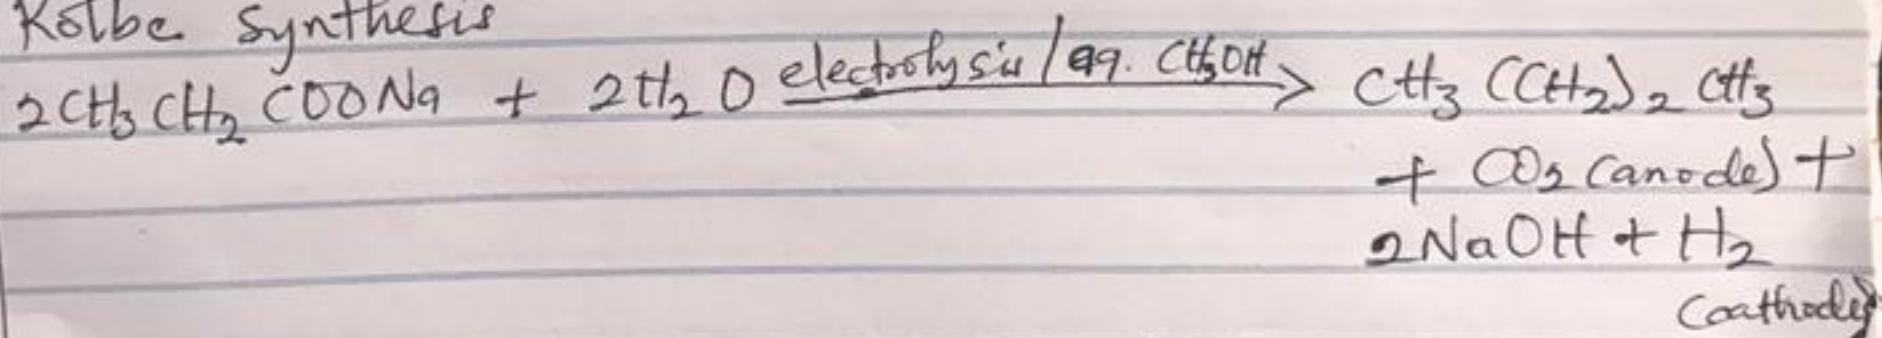 Kolbe Synthesis
2CH₃CH₂COONa + 2H₂O electrolysis/aq. CH₃OH> CH₃(CH₂)₂CH₃
+ CO₂ (anode) +
2NaOH + H₂
(Cathode)